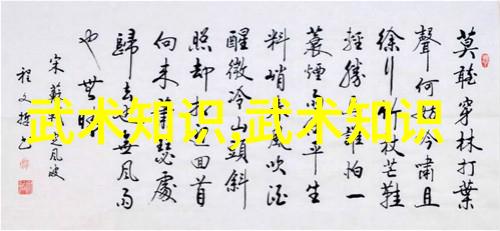 莫聽穿林打葉
聲何妨吟嘯且
徐行竹杖芒鞋
輕勝誰怕一
蓑煙雨平生
料峭風吹酒
醒微冷山頭斜
照却迎回首
向来瑟處
歸去無風雨
也無晴
宋蘇風波
程文
武术知识,武术知识